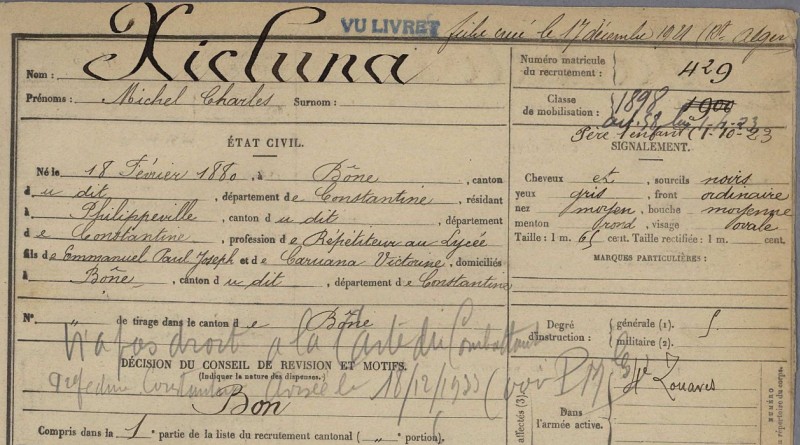 VU LIVRET
fiche créé le 17 décembre 1921 (Rt Alger
Nom : Xicluna
Prénoms : Michel Charles Surnom :
ÉTAT CIVIL.
Né le 18 Février 1880, à Bône, canton
d u dit, département d e Constantine, résidant
à Philippeville, canton d u dit, département
d e Constantine, profession d e Répétiteur au Lycée
fils d e Emmanuel Paul Joseph et d e Caruana Victorine, domiciliés
à Bône, canton d u dit, département d e Constantine
N° „ de tirage dans le canton d e Bône
N'a pas droit à la Carte du Combattant
DÉCISION DU CONSEIL DE REVISION ET MOTIFS.
(Indiquer la nature des dispenses.)
Constantine le 18/12/1933 (voir
Bon
Compris dans la 1e partie de la liste du recrutement cantonal ( „ portion)
Numéro matricule du recrutement : 429
Classe de mobilisation : 1898 1900
art. 58 1-4-23
Père 1 enfant (1-10-23
SIGNALEMENT.
Cheveux et, sourcils noirs
yeux gris, front ordinaire
nez moyen, bouche moyenne
menton rond, visage ovale
Taille : 1 m. 65 cent. Taille rectifiée : 1 m. cent.
MARQUES PARTICULIÈRES :
Degré d'instruction : générale (1).
militaire (2).
affectés (3)
Dans l'armée active.
Zouaves
NUMÉRO
du répertoire du corps.